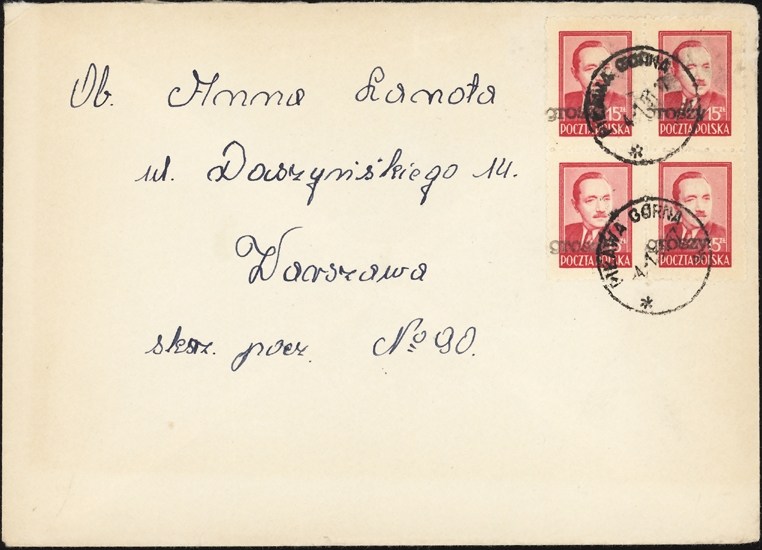 Ob. Anna Łanota
ul. Daszyńskiego 14.
Warszawa
skrz. pocz. No 90.
15zł
POCZTA POLSKA
15zł
POCZTA POLSKA
groszy
groszy
POCZTA POLSKA
groszy
POCZTA POLSKA
groszy
GÓRNA
PIŁAWA GÓRNA